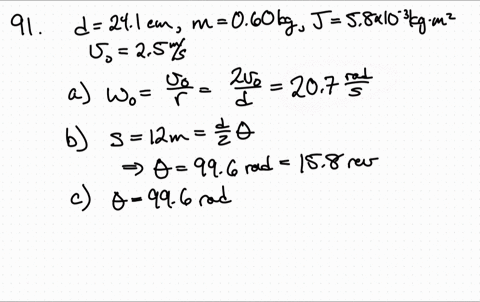 91. d = 24.1 cm, m = 0.60 kg, J = 5.8×10⁻³ kg·m²
v₀ = 2.5 m/s
a) ω₀ = v₀/r = 2v₀/d = 20.7 rad/s
b) s = 12m = d/2 θ
⇒ θ = 99.6 rad = 15.8 rev
c) θ = 99.6 rad